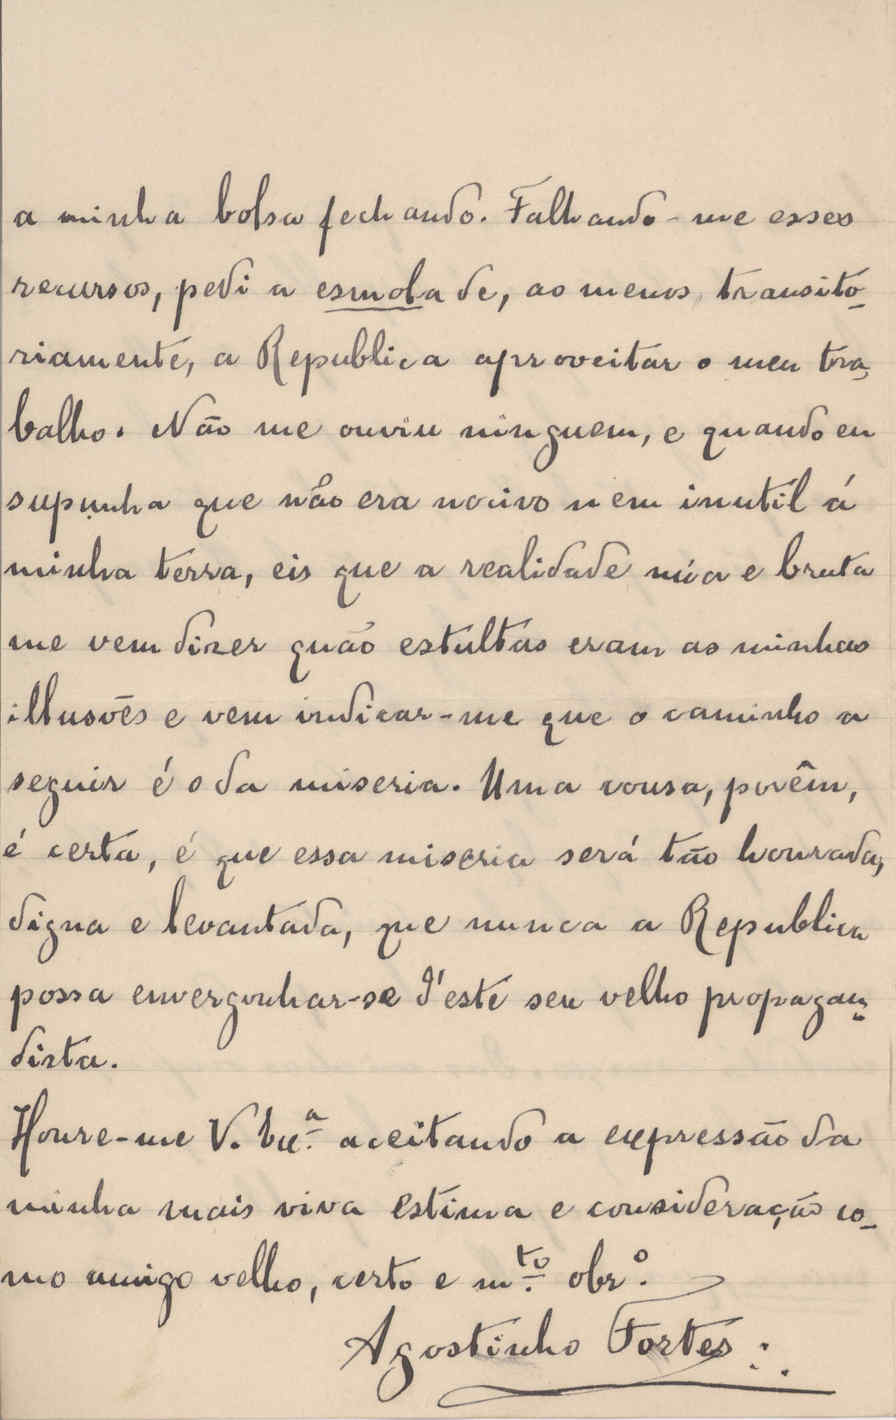 a minha bolsa fechando. Falhando-me esses
recursos, pedi a esmola de, ao menos, transito-
riamente, a Republica aproveitar o meu tra-
balho. Não me ouviu ninguem, e quando eu
supunha que não era nocivo nem inutil á
minha terra, eis que a realidade núa e bruta
me vem dizer quão estultas eram as minhas
illusões e vem indicar-me que o caminho a
seguir é o da miseria. Uma cousa, porêm,
é certa, é que essa miseria será tão honrada,
digna e levantada, que nunca a Republica
possa envergonhar-se d'este seu velho propagan-
dista.
Honre-me V. Ex.ª aceitando a expressão da
minha mais viva estima e consideração co-
mo amigo velho, certo e m.to obr.º
Agostinho Fortes.